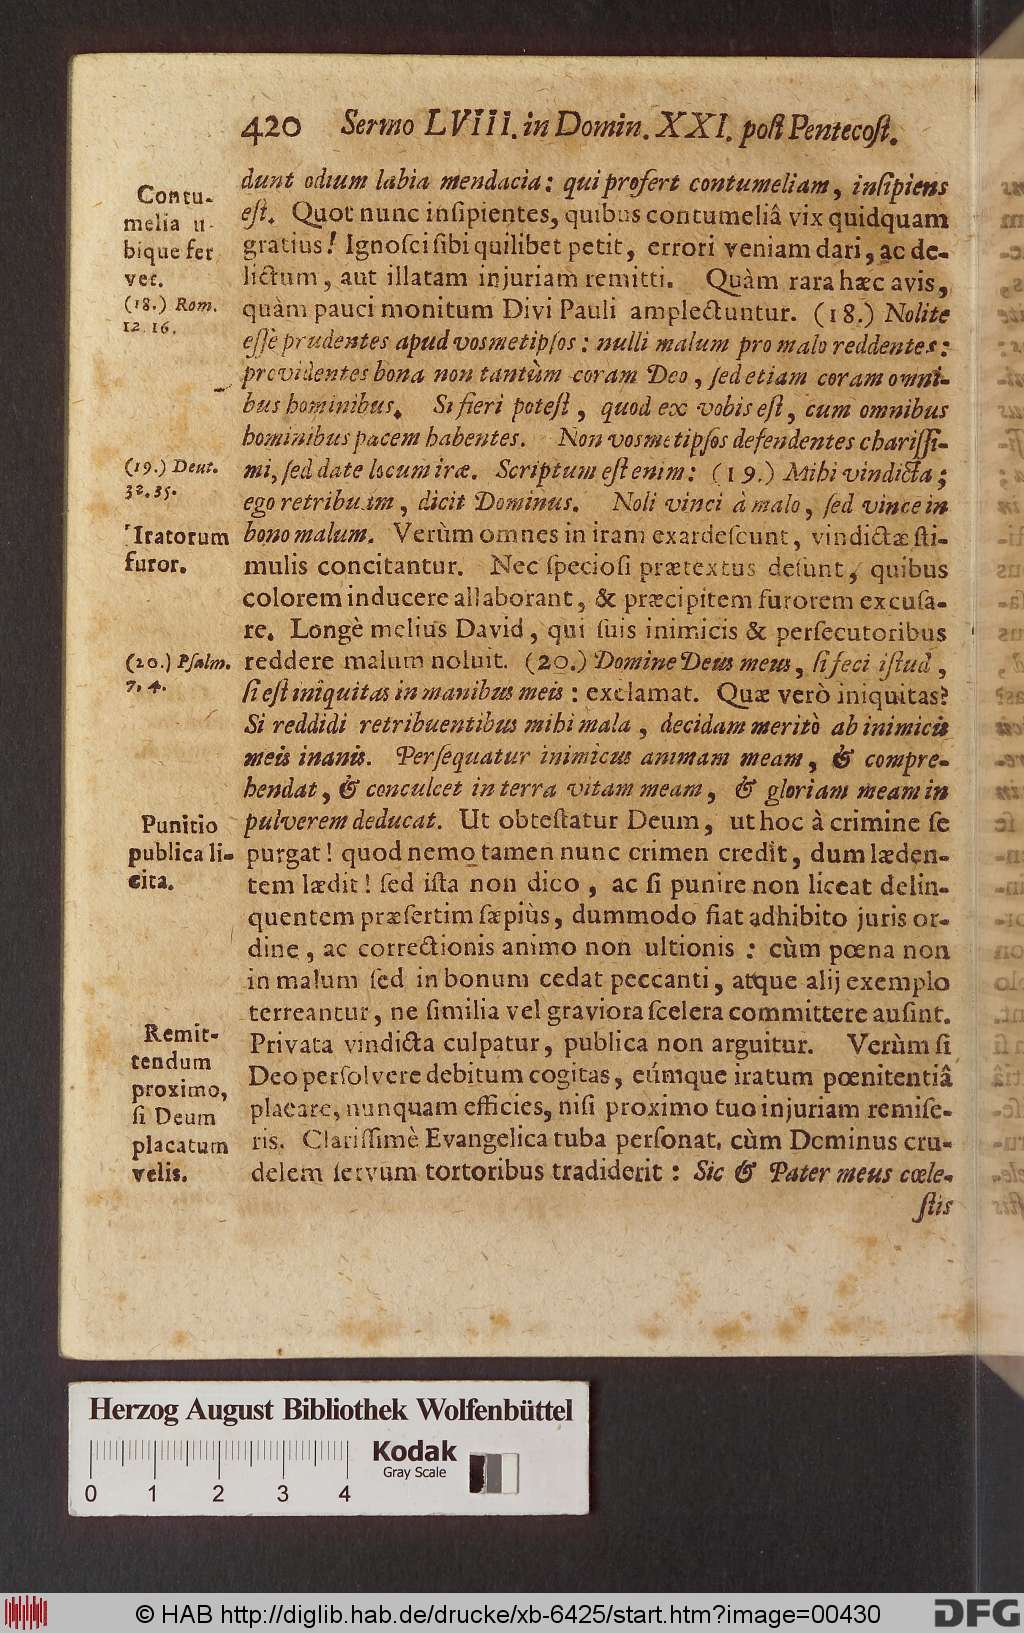 420 Sermo LVIII. in Domin. XXI. poſt Pentecoſt.
dunt odium labia mendacia: qui profert contumeliam, inſipiens
eſt. Quot nunc inſipientes, quibus contumeliâ vix quidquam
gratius! Ignoſci ſibi quilibet petit, errori veniam dari, ac de-
lictum, aut illatam injuriam remitti. Quàm rara hæc avis,
quàm pauci monitum Divi Pauli amplectuntur. (18.) Nolite
eſſè prudentes apud vosmetipſos: nulli malum pro malo reddentes:
providentes bona non tantùm coram Deo, ſed etiam coram omni-
bus hominibus. Si fieri poteſt, quod ex vobis eſt, cum omnibus
hominibus pacem habentes. Non vosmetipſos defendentes chariſſi-
mi, ſed date locum iræ. Scriptum eſt enim: (19.) Mihi vindicta;
ego retribuam, dicit Dominus. Noli vinci à malo, ſed vince in
bono malum. Verùm omnes in iram exardeſcunt, vindictæ ſti-
mulis concitantur. Nec ſpecioſi prætextus deſunt, quibus
colorem inducere allaborant, & præcipitem furorem excuſa-
re. Longè melius David, qui ſuis inimicis & perſecutoribus
reddere malum noluit. (20.) Domine Deus meus, ſi feci iſtud,
ſi eſt iniquitas in manibus meis: exclamat. Quæ verò iniquitas?
Si reddidi retribuentibus mihi mala, decidam meritò ab inimicis
meis inanis. Perſequatur inimicus animam meam, & compre-
hendat, & conculcet in terra vitam meam, & gloriam meam in
pulverem deducat. Ut obteſtatur Deum, ut hoc à crimine ſe
purgat! quod nemo tamen nunc crimen credit, dum læden-
tem lædit! ſed iſta non dico, ac ſi punire non liceat delin-
quentem præſertim ſæpiùs, dummodo fiat adhibito juris or-
dine, ac correctionis animo non ultionis: cùm pœna non
in malum ſed in bonum cedat peccanti, atque alij exemplo
terreantur, ne ſimilia vel graviora ſcelera committere auſint.
Privata vindicta culpatur, publica non arguitur. Verùm ſi
Deo perſolvere debitum cogitas, eúmque iratum pœnitentiâ
placare, nunquam efficies, niſi proximo tuo injuriam remiſe-
ris. Clariſſimè Evangelica tuba perſonat, cùm Dominus cru-
delem ſervum tortoribus tradiderit: Sic & Pater meus cœle-
ſtis
Contu-
melia u-
bique fer
vet.
(18.) Rom.
12. 16.
(19.) Deut.
32. 35.
Iratorum
furor.
(20.) Pſalm.
7. 4.
Punitio
publica li-
cita.
Remit-
tendum
proximo,
ſi Deum
placatum
velis.
Herzog August Bibliothek Wolfenbüttel
Kodak
Gray Scale
0 1 2 3 4
© HAB http://diglib.hab.de/drucke/xb-6425/start.htm?image=00430
DFG